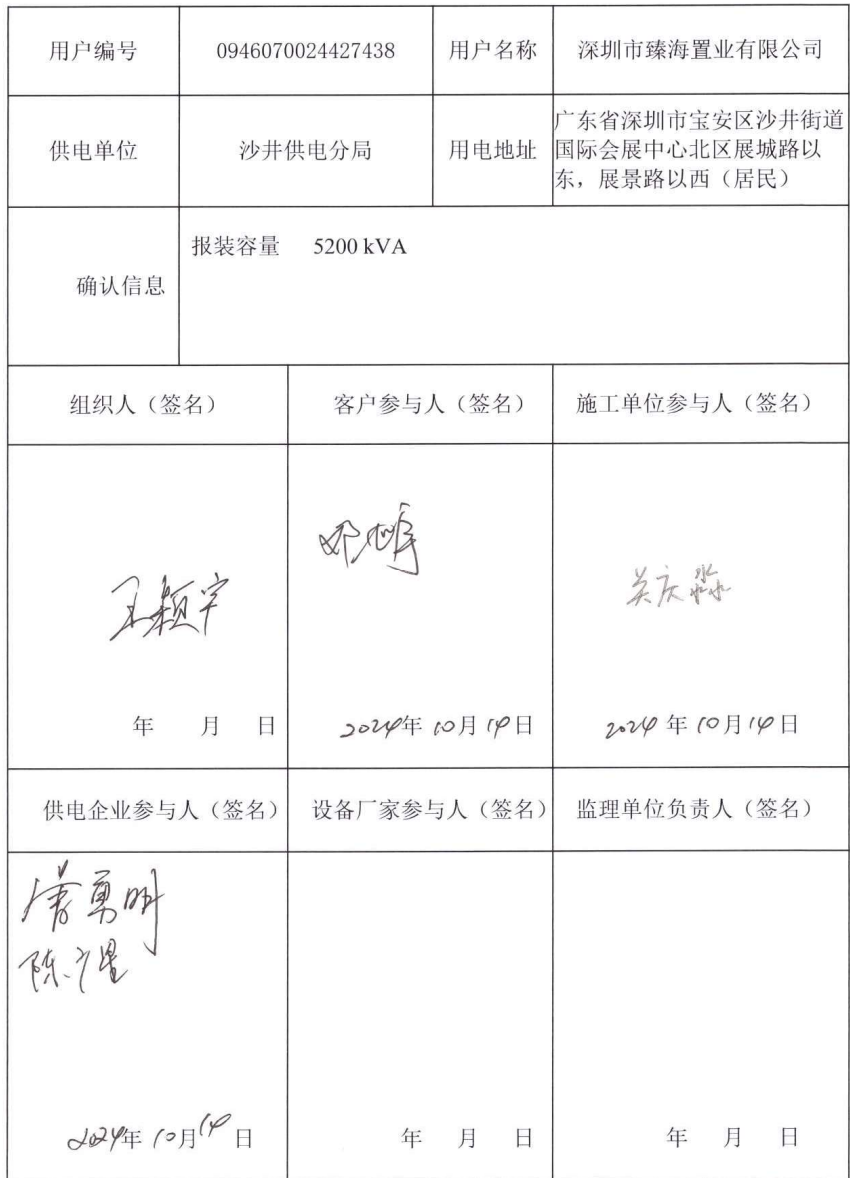 用户编号 0946070024427438 用户名称 深圳市臻海置业有限公司
供电单位 沙井供电分局 用电地址 广东省深圳市宝安区沙井街道
国际会展中心北区展城路以
东，展景路以西（居民）
确认信息 报装容量 5200 kVA
组织人（签名） 客户参与人（签名） 施工单位参与人（签名）
王颖宇 吴庆淼
年 月 日 2024年10月14日 2024年10月14日
供电企业参与人（签名） 设备厂家参与人（签名） 监理单位负责人（签名）
陈广星
2024年10月14日 年 月 日 年 月 日